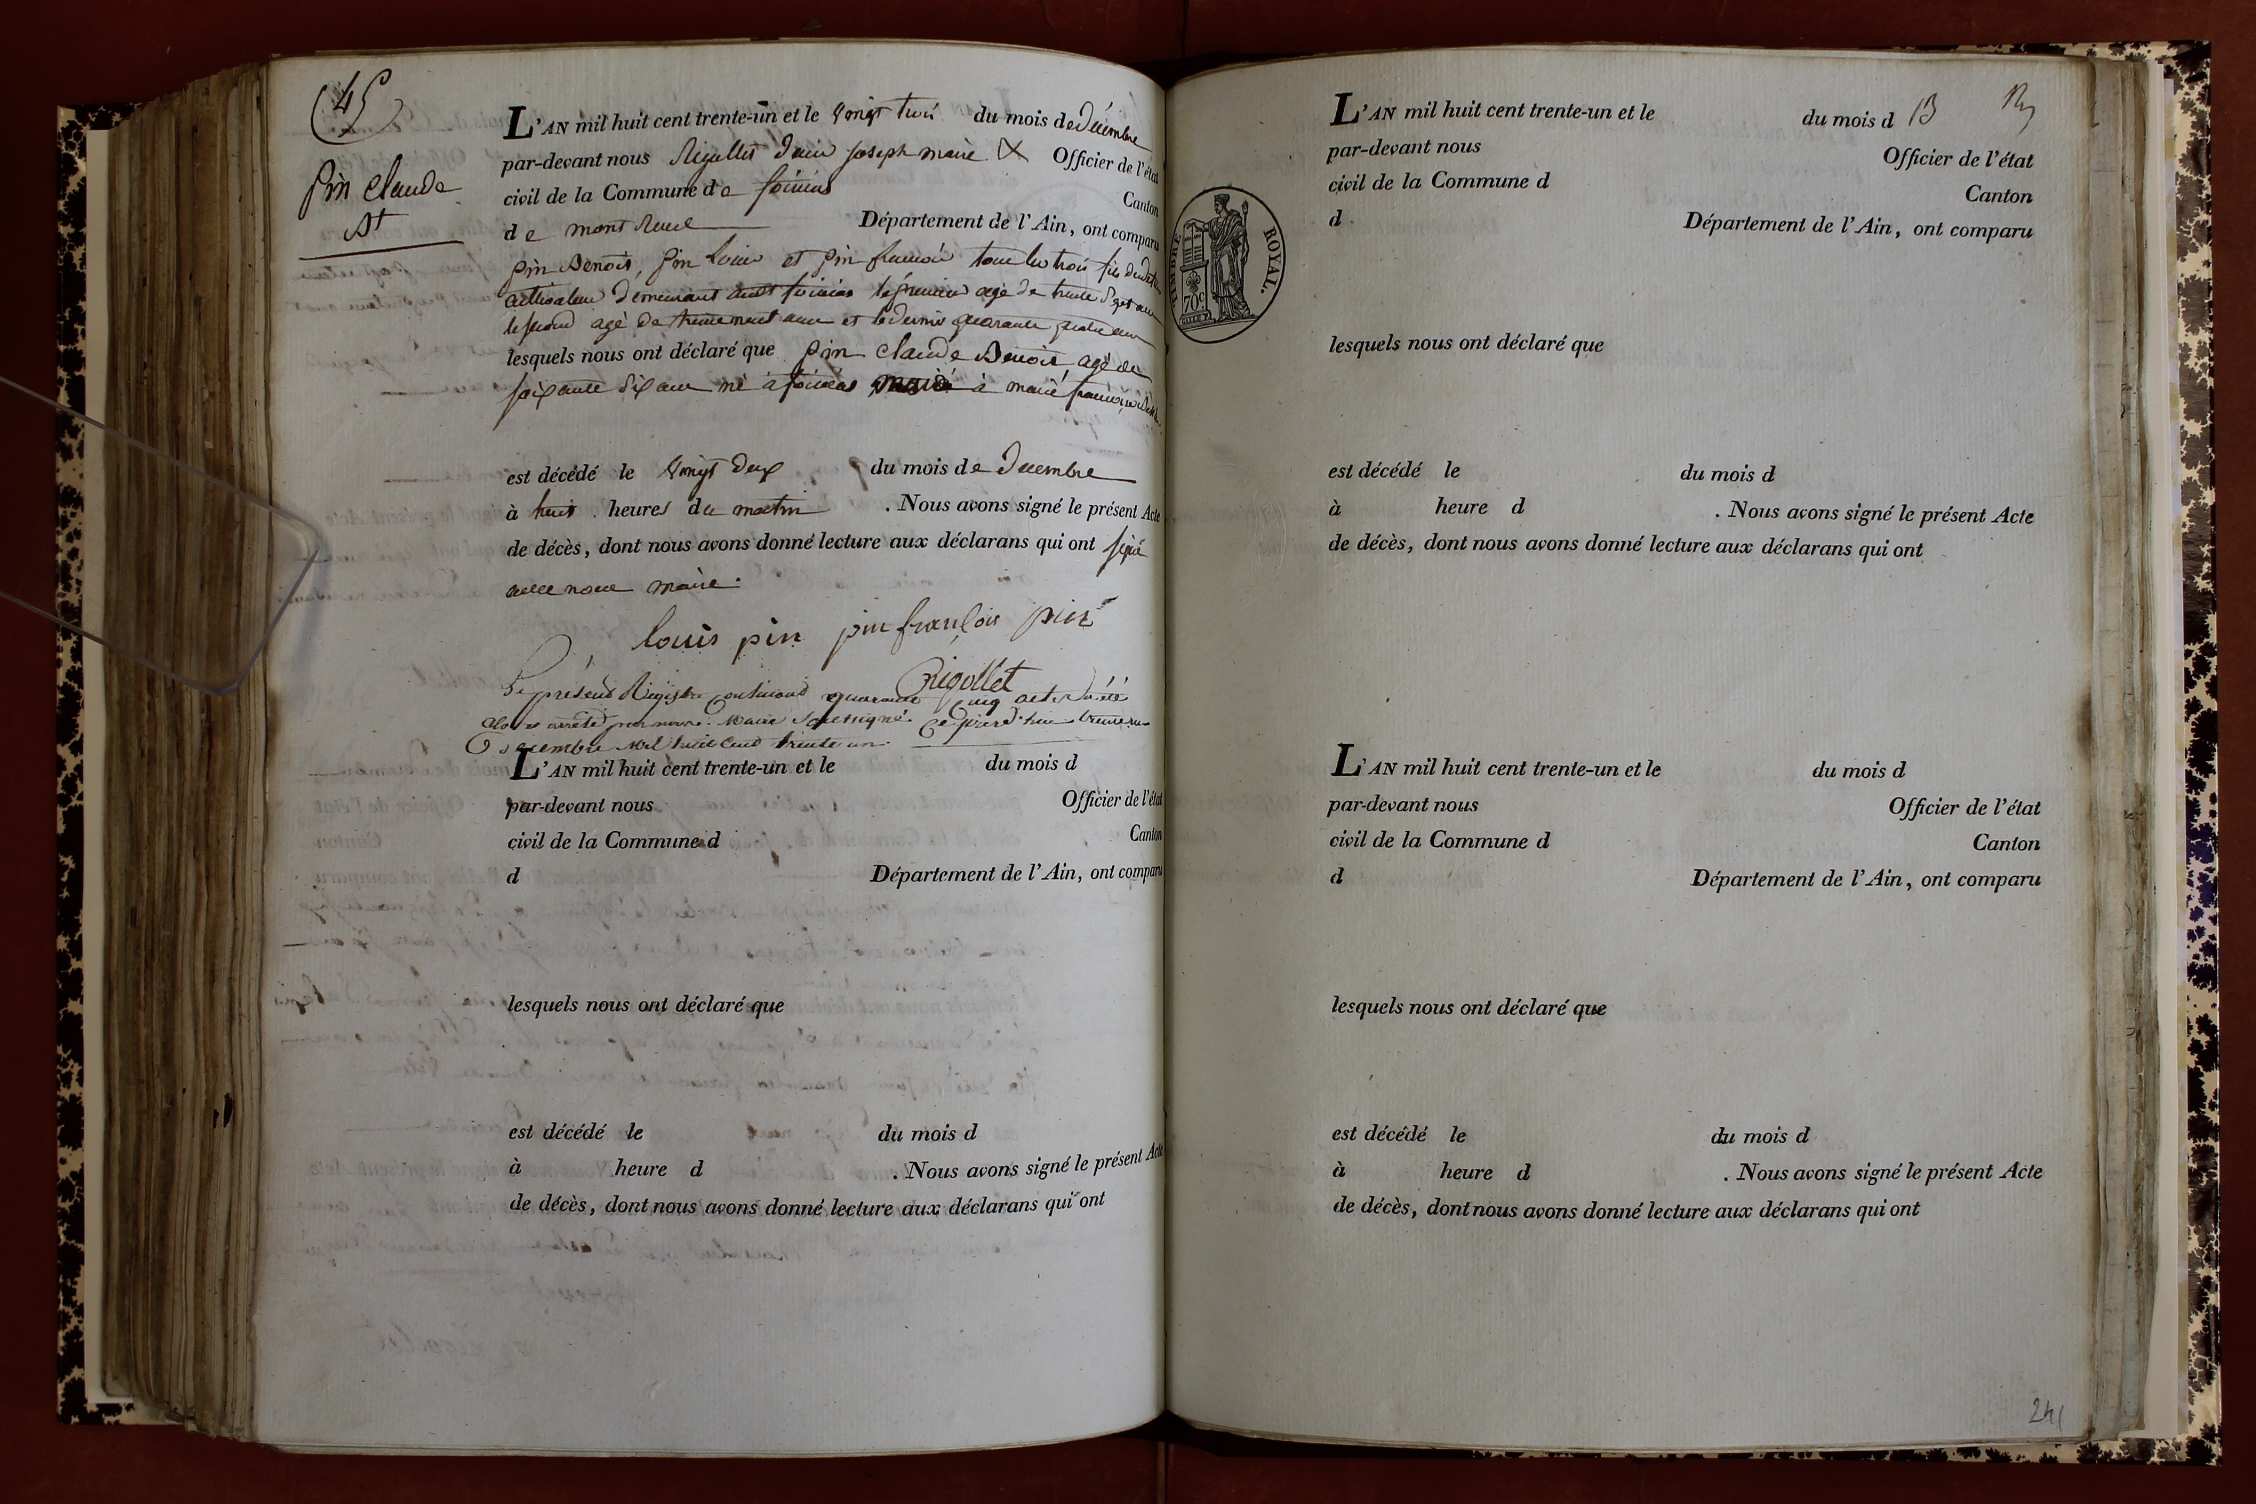 45
pin Claude
Bt
L'AN mil huit cent trente-un et le vingt trois du mois de décembre
par-devant nous Rigollet Denis joseph maire Officier de l'état
civil de la Commune de foissiat Canton
de mont Revel Département de l'Ain, ont comparu
pin Benoit, pin louis et pin francois tous les trois fils du
cultivateurs demeurant audit foissiat le premier agé de trente sept ans
le second agé de trente neuf ans et le dernier quarante quatre ans
lesquels nous ont déclaré que pin claude Benoit, agé de
soixante dix ans né à foissiat marié à marie françoise
est décédé le vingt deux du mois de decembre
à huit heures du matin . Nous avons signé le présent Acte
de décès, dont nous avons donné lecture aux déclarans qui ont signé
avec nous maire.
louis pin pin françois pin
Rigollet
Le présent Registre contenant quarante cinq actes a été
clos et arreté par nous Maire soussigné ce jourd'hui trente un
Decembre mil huit cent trente un
L'AN mil huit cent trente-un et le du mois d
par-devant nous Officier de l'état
civil de la Commune d Canton
d Département de l'Ain, ont comparu
lesquels nous ont déclaré que
est décédé le du mois d
à heure d . Nous avons signé le présent Acte
de décès, dont nous avons donné lecture aux déclarans qui ont
L'AN mil huit cent trente-un et le du mois d
par-devant nous Officier de l'état
civil de la Commune d Canton
d Département de l'Ain, ont comparu
TIMBRE ROYAL.
70c
lesquels nous ont déclaré que
est décédé le du mois d
à heure d . Nous avons signé le présent Acte
de décès, dont nous avons donné lecture aux déclarans qui ont
L'AN mil huit cent trente-un et le du mois d
par-devant nous Officier de l'état
civil de la Commune d Canton
d Département de l'Ain, ont comparu
lesquels nous ont déclaré que
est décédé le du mois d
à heure d . Nous avons signé le présent Acte
de décès, dont nous avons donné lecture aux déclarans qui ont
241